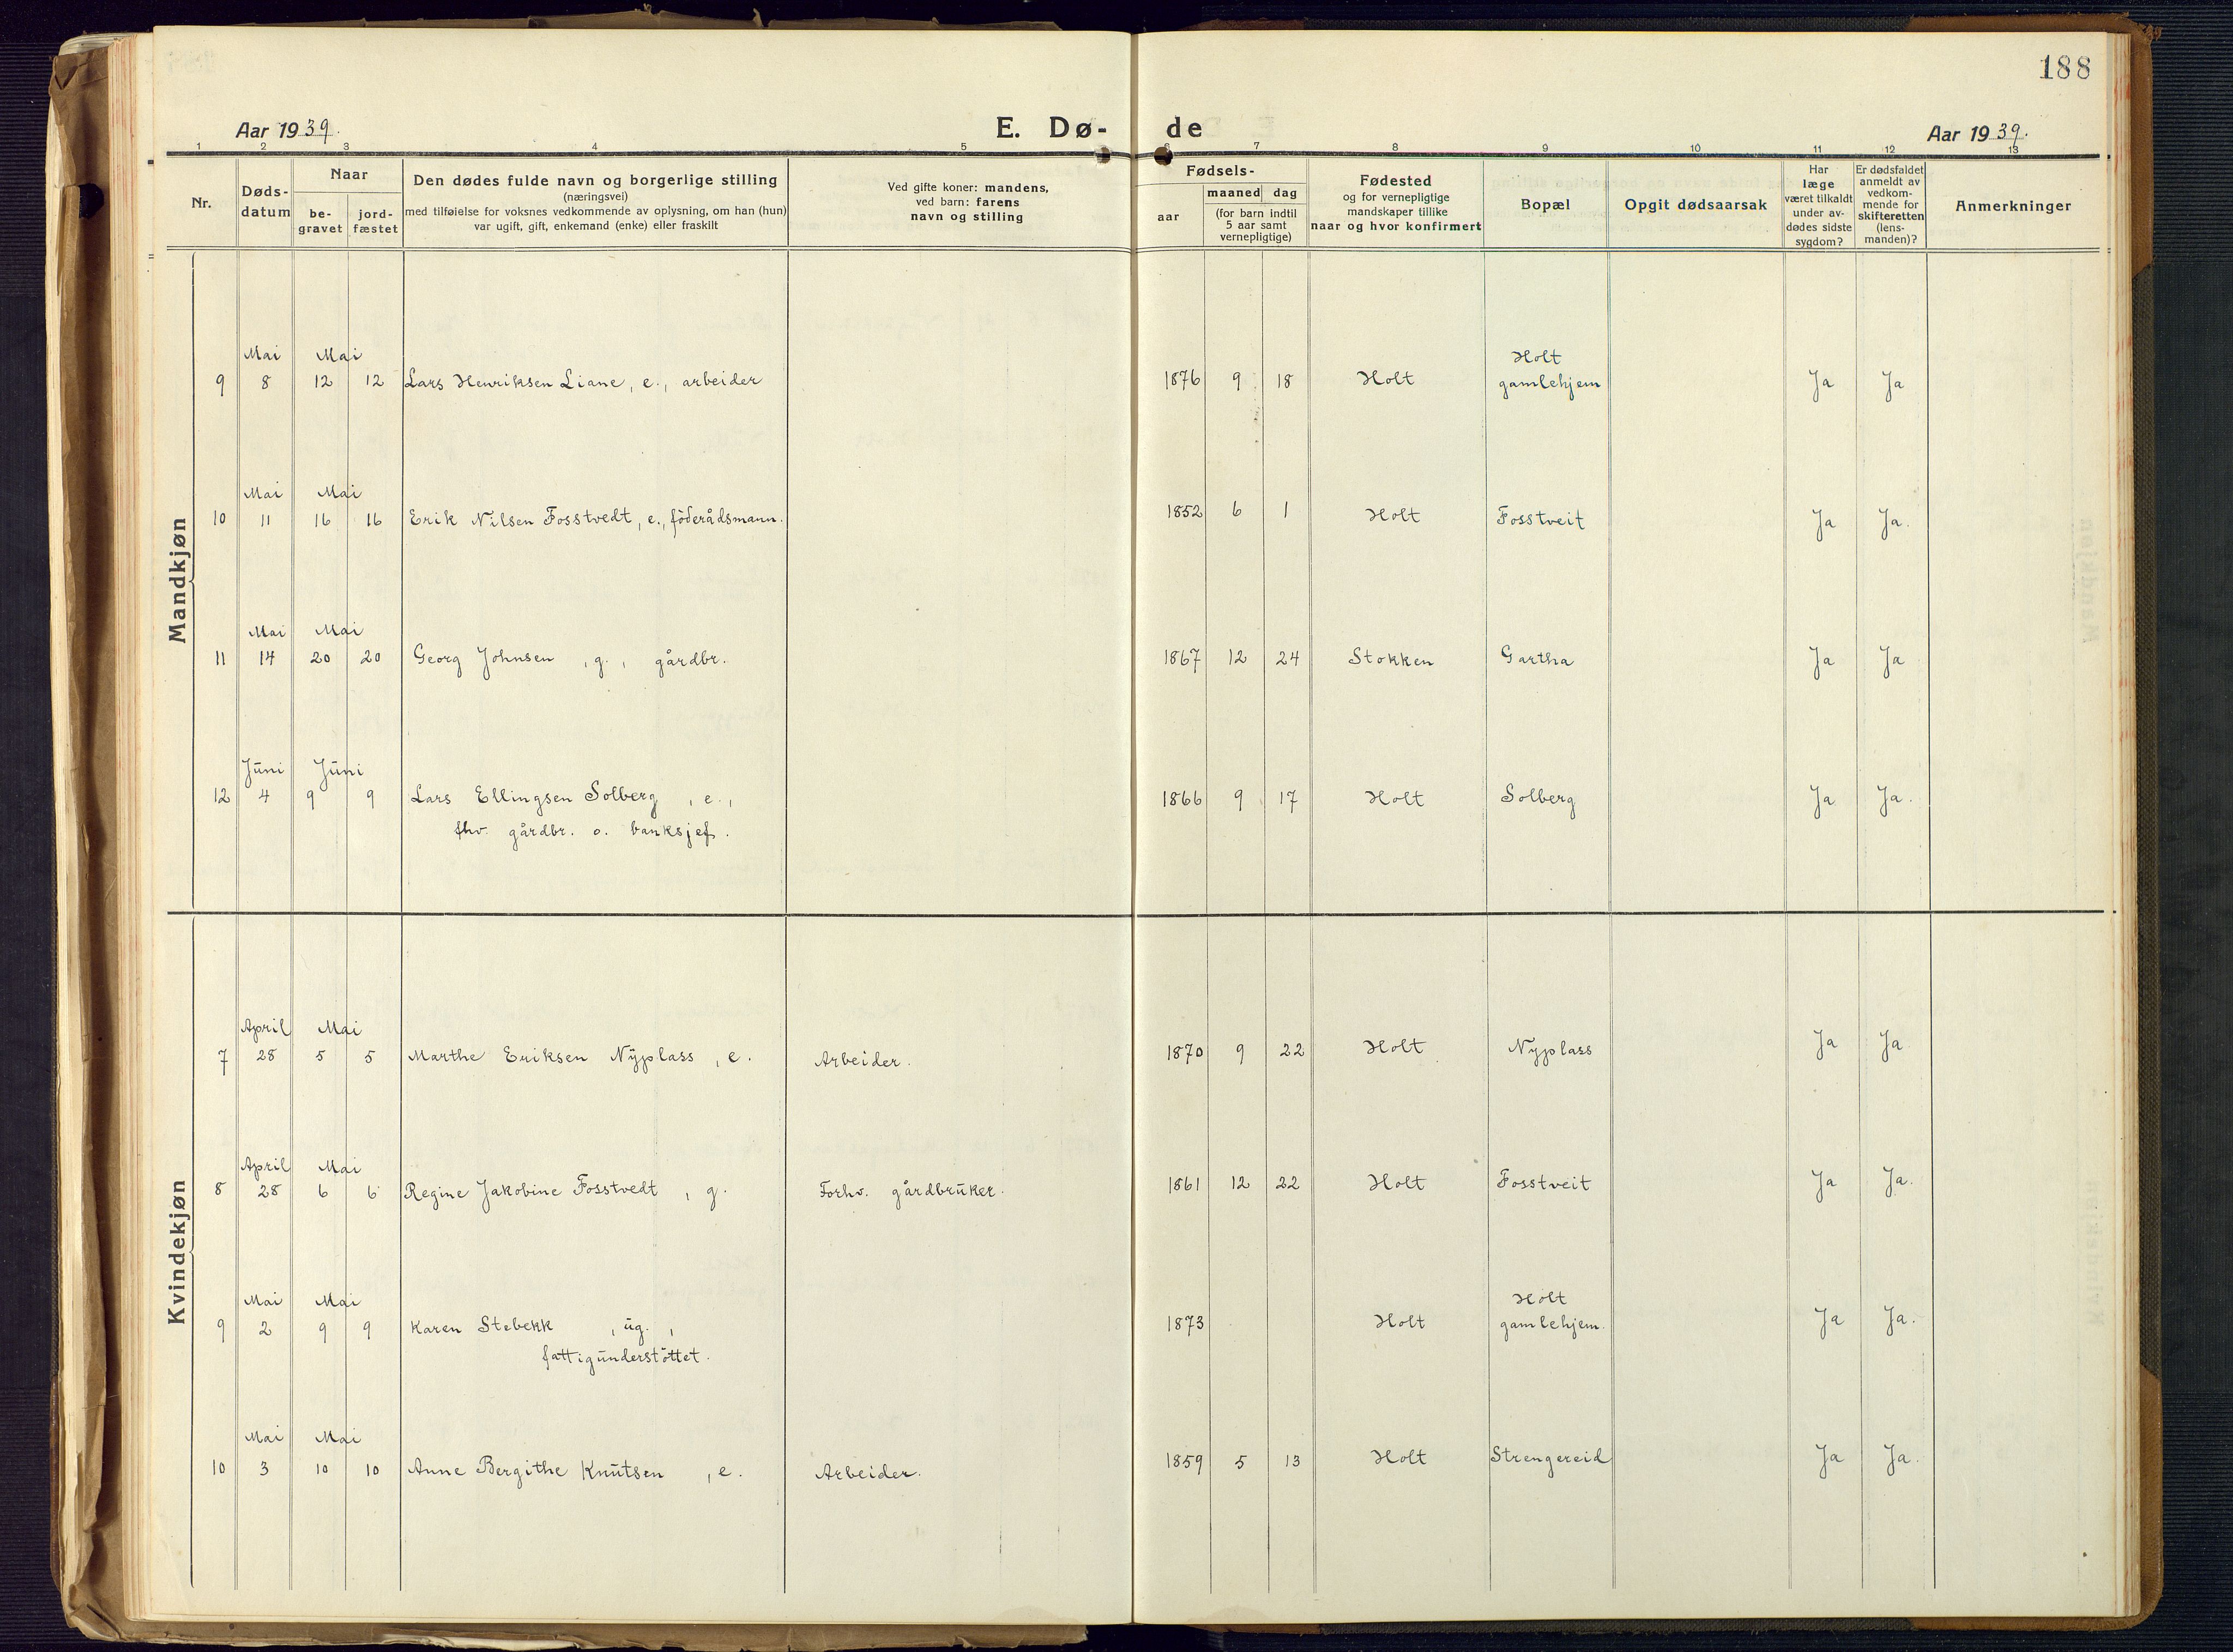 188
Aar 1939.
E. Dø-
de
Aar 1939.
1 2 3 4 5 6 7 8 9 10 11 12 13
Nr.
Døds-
datum
Naar
be-
gravet
jord-
fæstet
Den dødes fulde navn og borgerlige stilling
(næringsvei)
med tilføielse for voksnes vedkommende av oplysning, om han (hun)
var ugift, gift, enkemand (enke) eller fraskilt
Ved gifte koner: mandens,
ved barn: farens
navn og stilling
Fødsels-
aar
maaned dag
(for barn indtil
5 aar samt
vernepligtige)
Fødested
og for vernepligtige
mandskaper tillike
naar og hvor konfirmert
Bopæl
Opgit dødsaarsak
Har
læge
været tilkaldt
under av-
dødes sidste
sygdom?
Er dødsfaldet
anmeldt av
vedkom-
mende for
skifteretten
(lens-
manden)?
Anmerkninger
Mandkjøn
Mai Mai Holt
9 8 12 12 Lars Henriksen Liane, e., arbeider 1876 9 18 Holt gamlehjem Ja Ja
Mai Mai
10 11 16 16 Erik Nilsen Fosstvedt, e., föderådsmann. 1852 6 1 Holt Fosstveit Ja Ja.
Mai Mai
11 14 20 20 Georg Johnsen , g. , gårdbr. 1867 12 24 Stokken Gartha Ja Ja
Jūni Jūni
12 4 9 9 Lars Ellingsen Solberg , e., 1866 9 17 Holt Solberg Ja Ja.
fhv. gårdbr. o. banksjef.
Kvindekjøn
April Mai
7 28 5 5 Marthe Eriksen Nÿplass , e. Arbeider. 1870 9 22 Holt Nyplass Ja Ja
April Mai
8 28 6 6 Regine Jakobine Fosstvedt , g. Forhv. gårdbrūker. 1861 12 22 Holt Fosstveit Ja Ja.
Mai Mai Holt
9 2 9 9 Karen Stebekk , ūg. , 1873 Holt gamlehjem. Ja Ja.
fattigūnderstöttet.
Mai Mai
10 3 10 10 Anne Bergithe Knūtsen , e. Arbeider. 1859 5 13 Holt Strengereid Ja Ja.